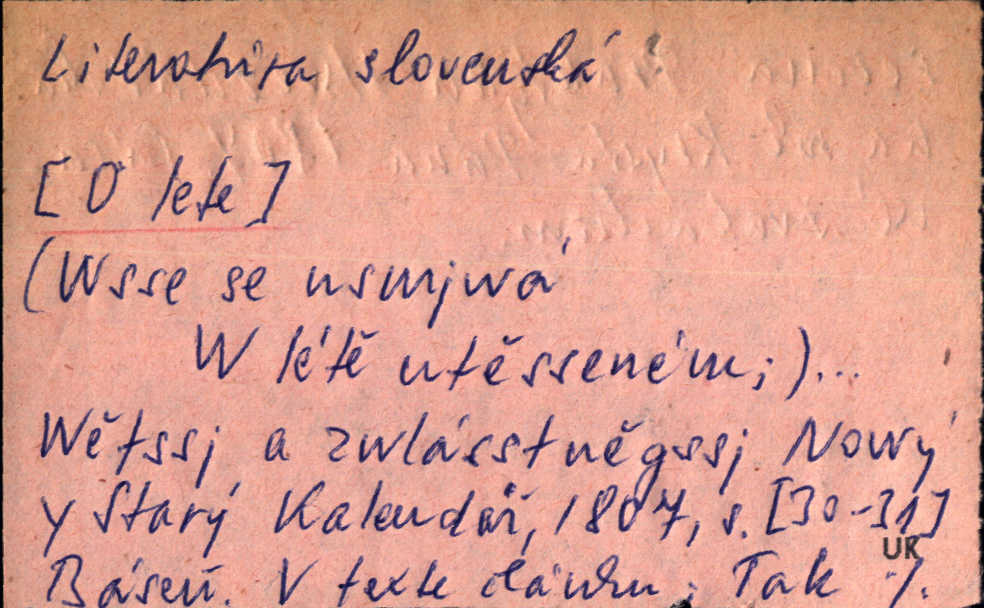 Literatúra slovenská
[O lete]
(Wsse se usmjwá
W létě utěsseném;)...
Wětssj a zwlásstněgssj Nowý
y Starý Kalendář, 1807, s. [30-31]
UK
Báseň. V texte článku: Tak ./.